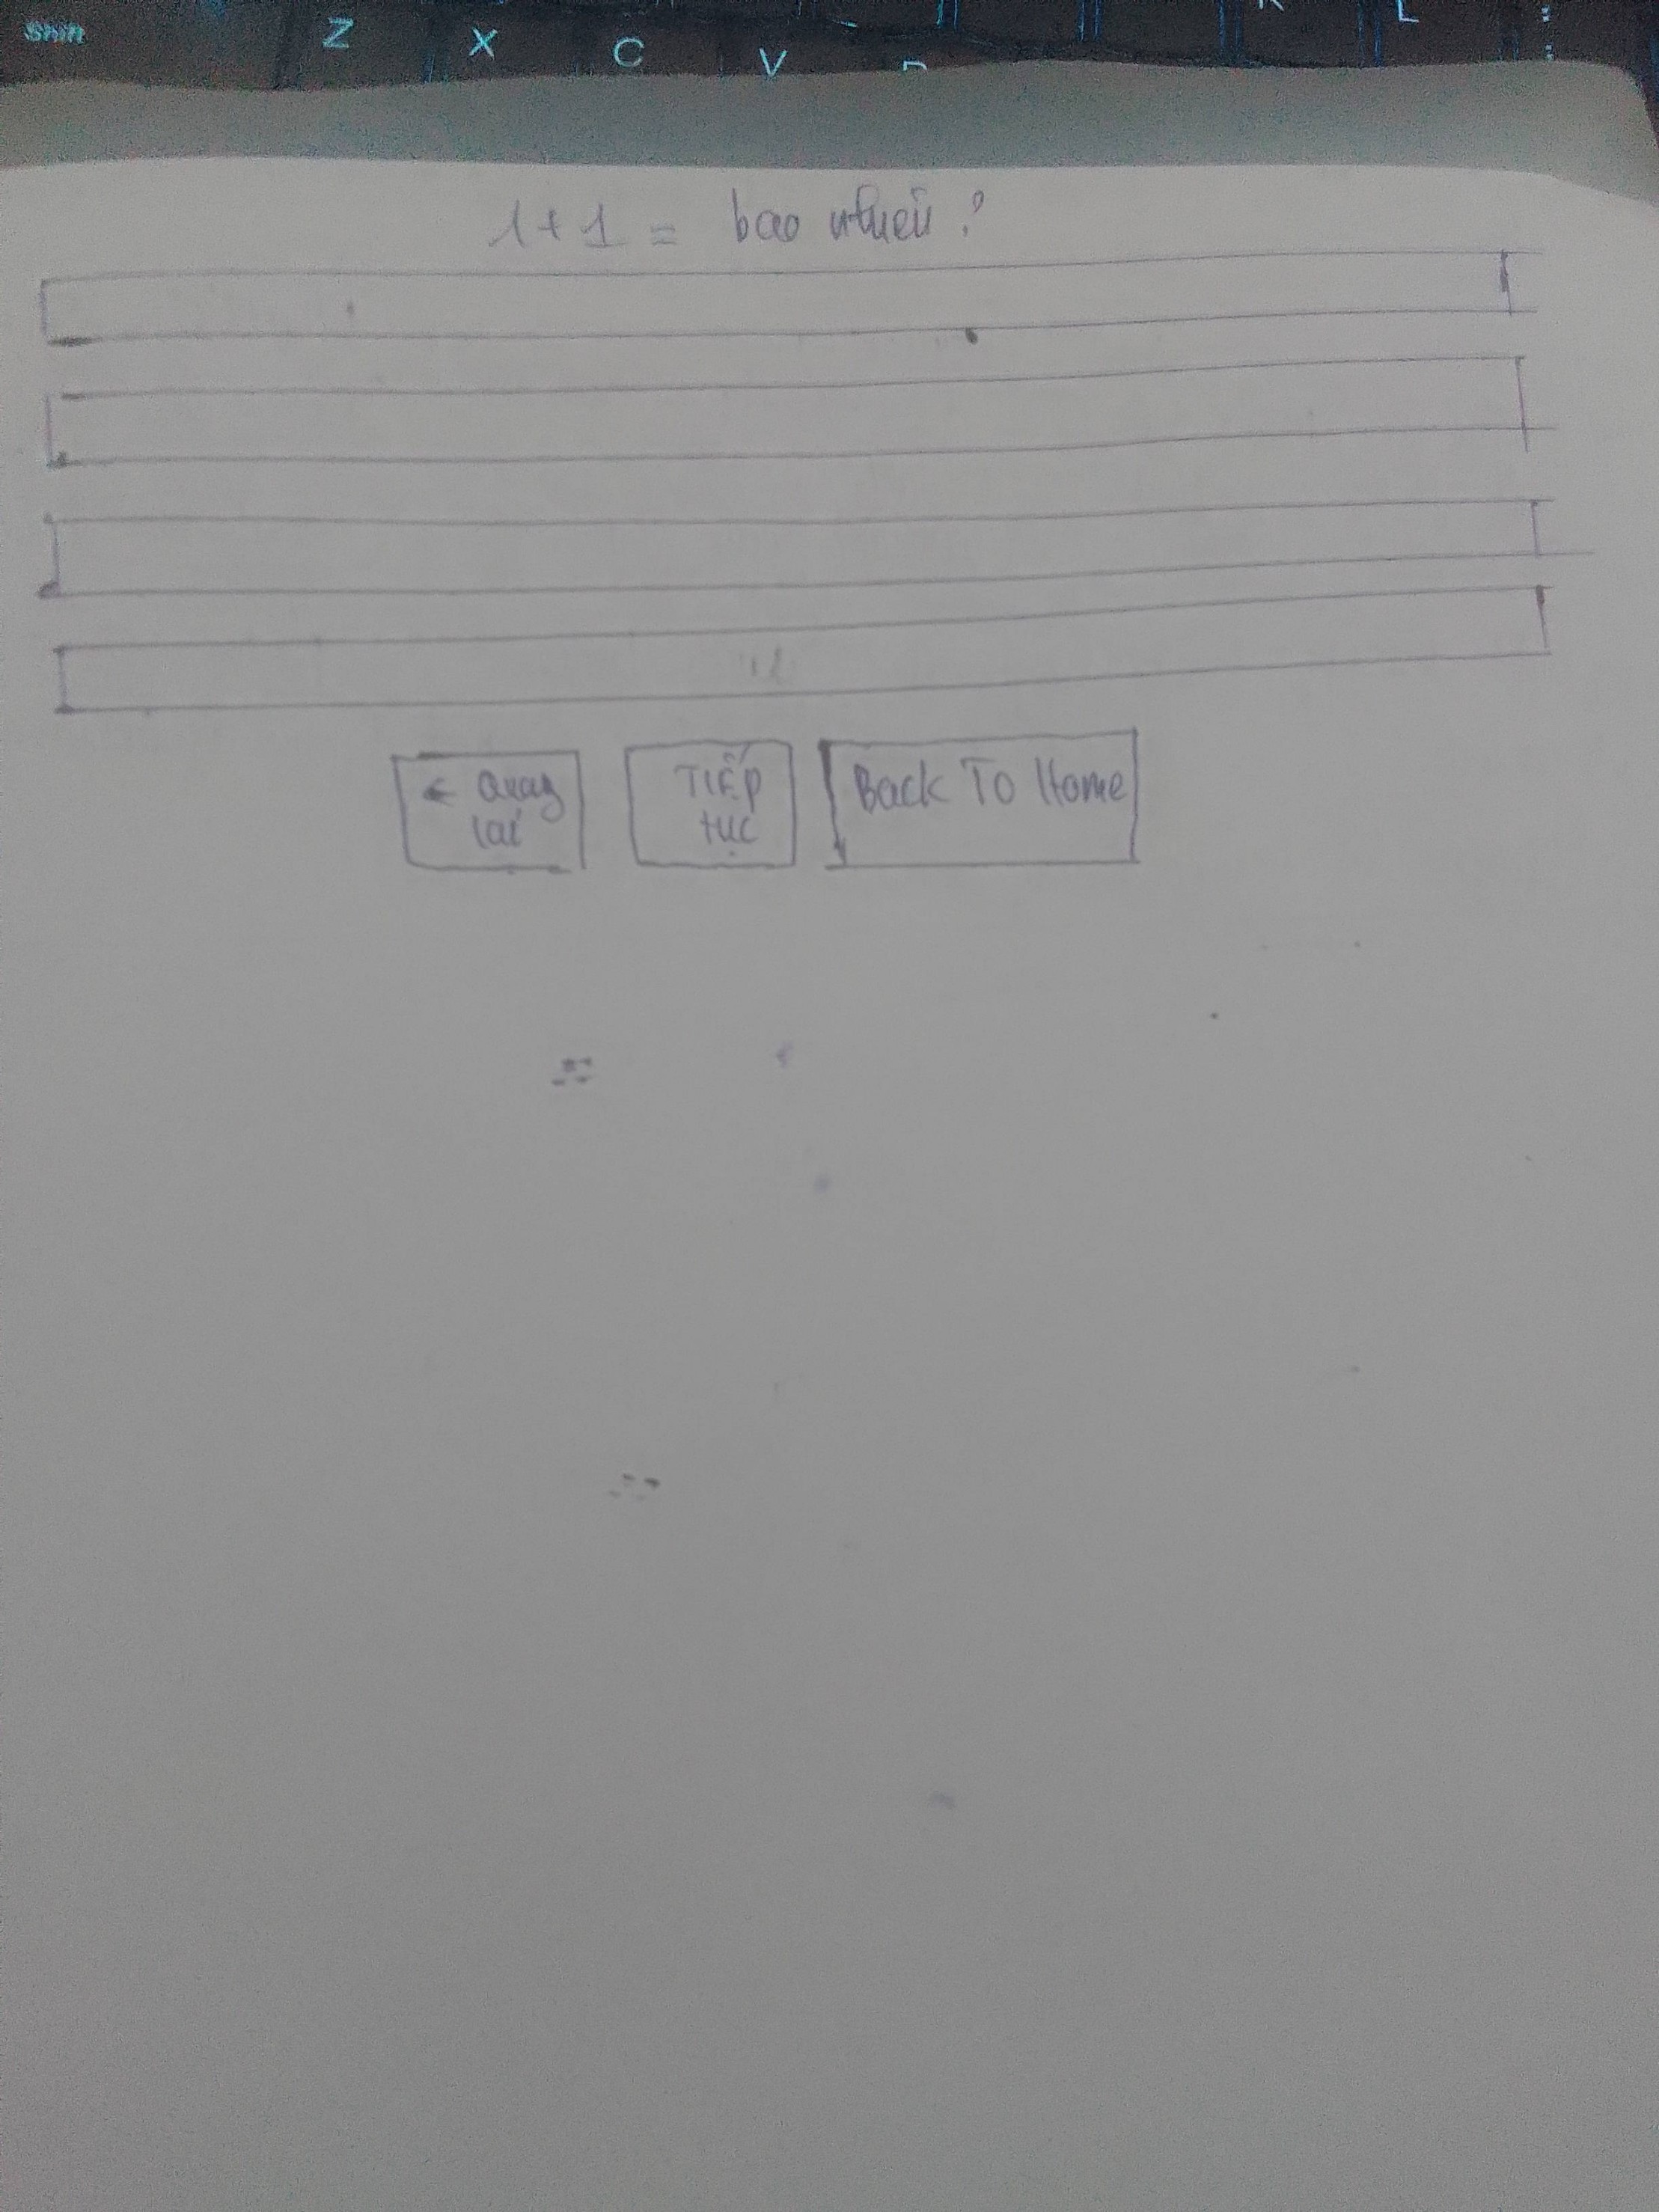 Shift
Z X C V
L
1 + 1 = bao nhiêu ?
← Quay
lại
TIẾP
TỤC
Back To Home